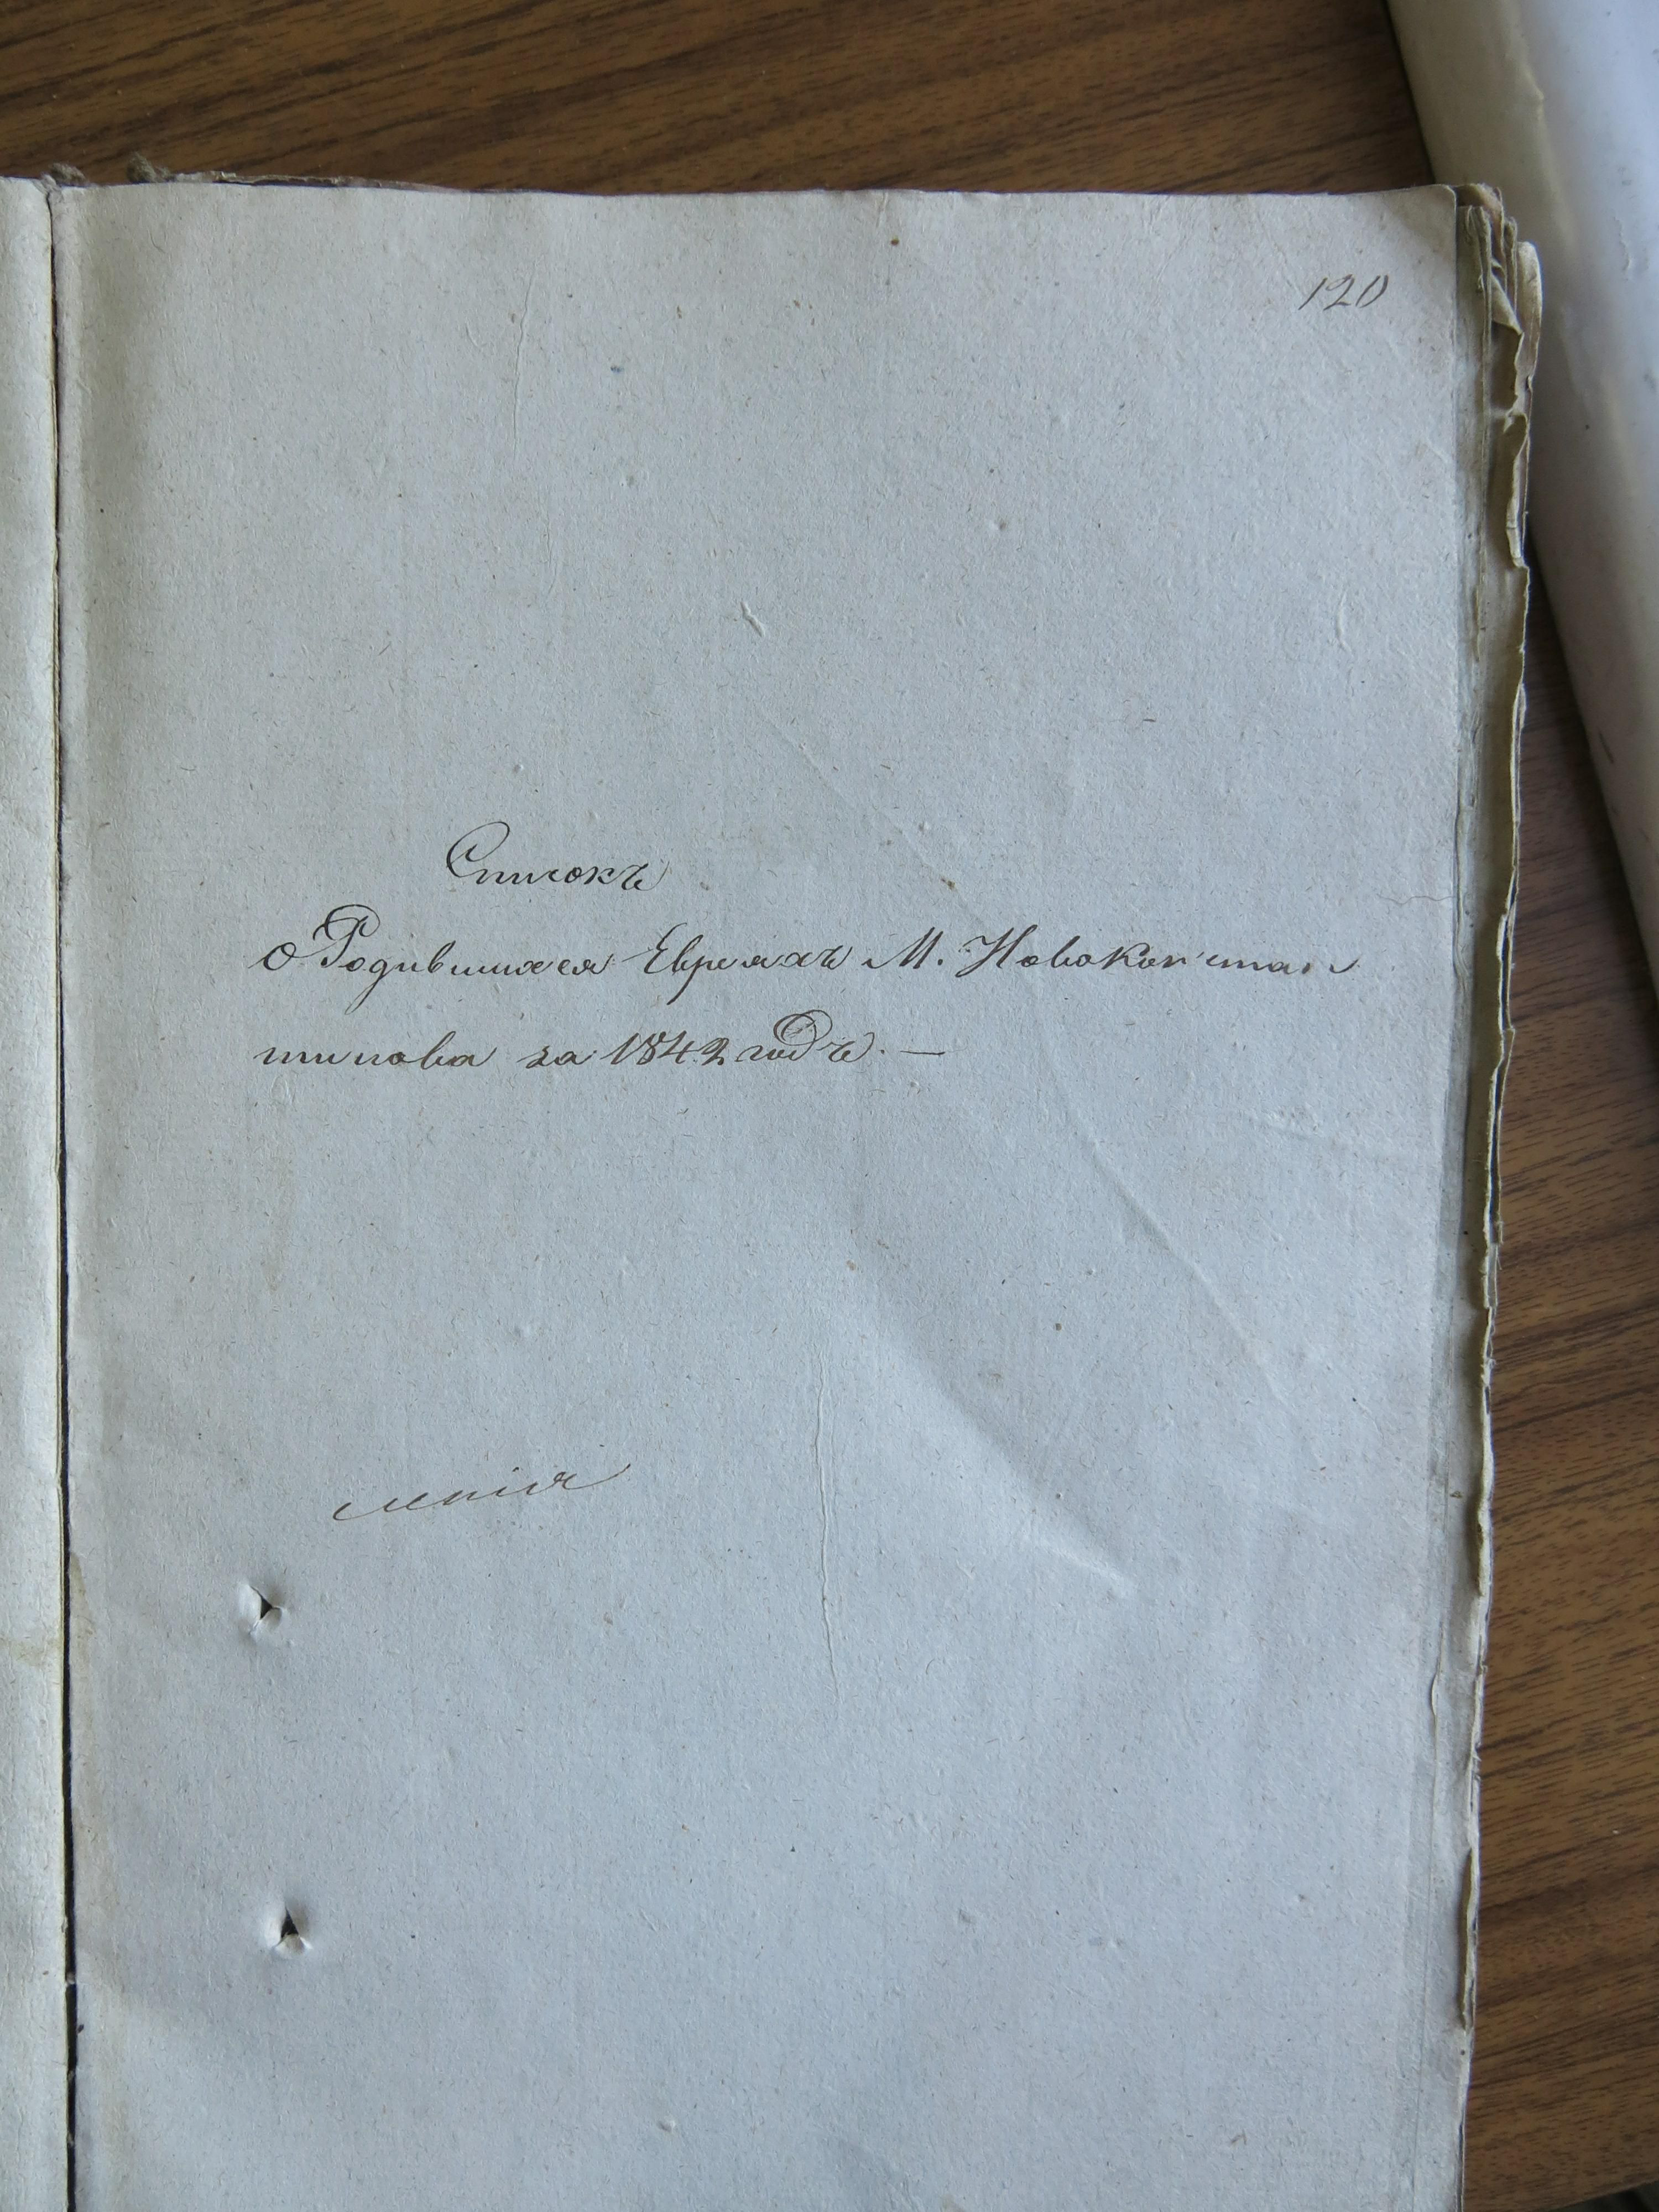 120
Списокъ
О Родившихся Евреяхъ М. Новоконстан
тинова за 1842 годъ. —